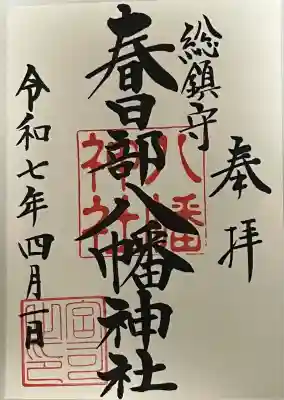 奉拝
総鎮守
春日部八幡神社
八幡
神社
令和七年四月廿日